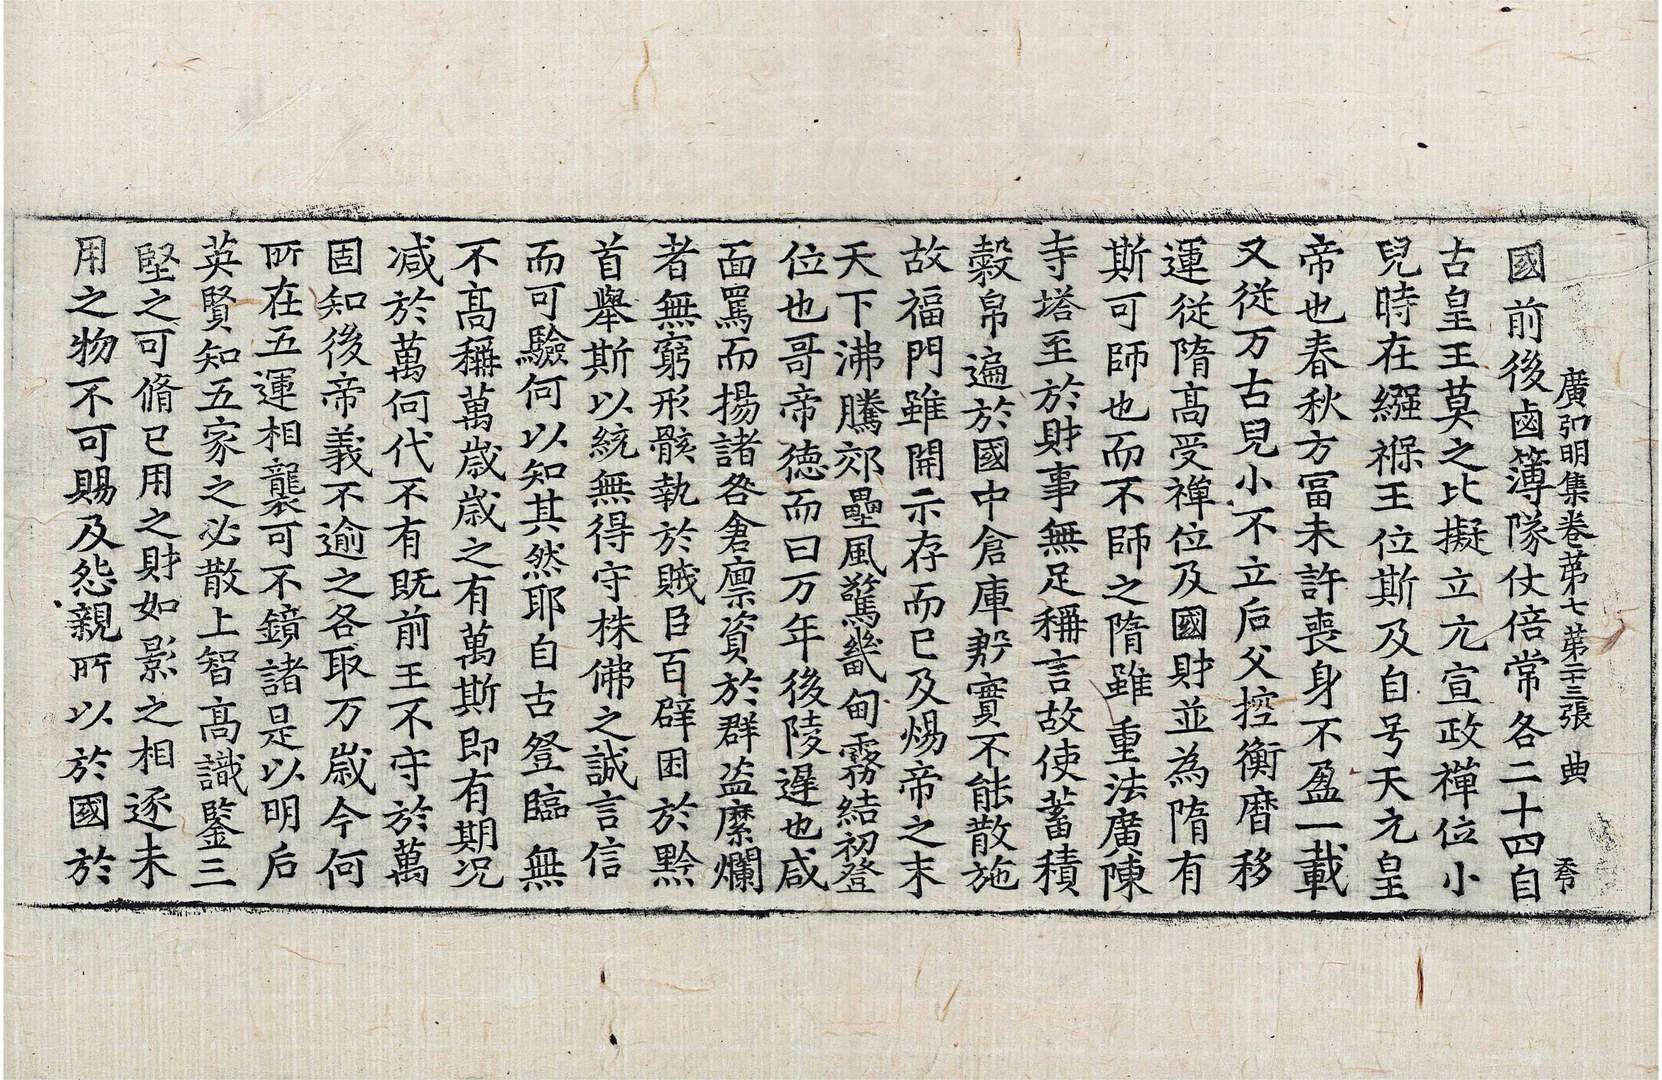 廣弘明集卷第七 第二十三張 典
國前後鹵簿隊仗倍常各二十四自
古皇王莫之比擬立亢宣政禪位小
兒時在繦褓王位斯及自号天元皇
帝也春秋方冨未許喪身不盈一載
又從万古兒小不立后父控衡曆移
運從隋髙受禪位及國財並為隋有
斯可師也而不師之隋雖重法廣陳
寺塔至於財事無足稱言故使蓄積
縠帛遍於國中倉庫豿實不能散施
故福門雖開示存而已及煬帝之末
天下沸騰郊壘風驚畿甸霧結初登
位也哥帝徳而曰万年後陵遲也咸
面罵而揚諸咎倉廪資於群盗縻爛
者無窮形骸執於賊臣百辟困於黔
首舉斯以統無得守株佛之誠言信
而可驗何以知其然耶自古登臨無
不髙稱萬歳歳之有萬斯即有期况
减於萬何代不有既前王不守於萬
固知後帝義不逾之各取万歳今何
所在五運相襲可不鏡諸是以明后
英賢知五家之必散上智髙識鑒三
堅之可脩已用之財如影之相逐未
用之物不可賜及怨親所以於國於